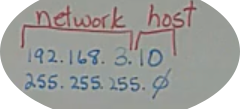 network host
192.168.3.10
255.255.255.0